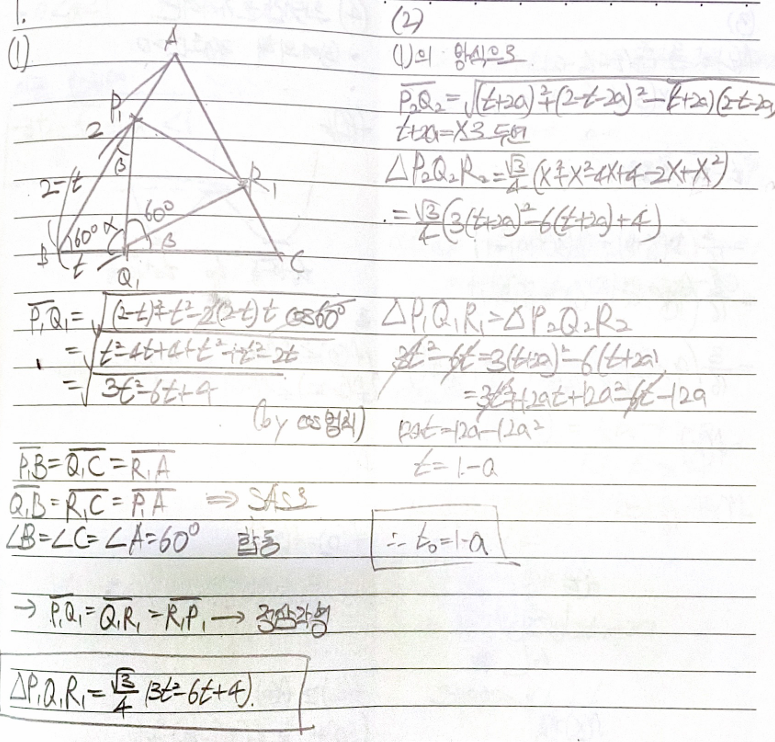 1.
(1)
A
P₁
2
β
R₁
2-t
60°
α
60°
β
B
t
Q₁
C
P₁Q₁ = √((2-t)²+t²-2(2-t)t cos60°)
= √(t²-4t+4+t²+t²-2t)
= √(3t²-6t+4)
(by cos법칙)
P₁B=Q₁C=R₁A
Q₁B=R₁C=P₁A ⇒ SAS
∠B=∠C=∠A=60° 합동
→ P₁Q₁=Q₁R₁=R₁P₁ → 정삼각형
△P₁Q₁R₁ = √3/4 (3t²-6t+4).
(2)
(1)의 방식으로
P₂Q₂=√((t+2a)²+(2-t-2a)²-(t+2a)(2-t-2a)
t+2a=X로 두면
△P₂Q₂R₂=√3/4 (X²+X²-4X+4-2X+X²)
= √3/4 (3(t+2a)²-6(t+2a)+4)
△P₁Q₁R₁=△P₂Q₂R₂
3t²-6t=3(t+2a)²-6(t+2a)
=3t²+12at+12a²-6t-12a
12at=12a-12a²
t=1-a
∴ t₀=1-a